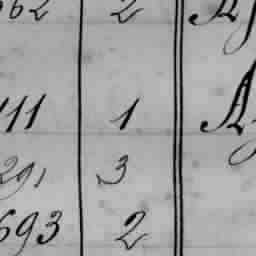 662 2
111 1
291 3
693 2